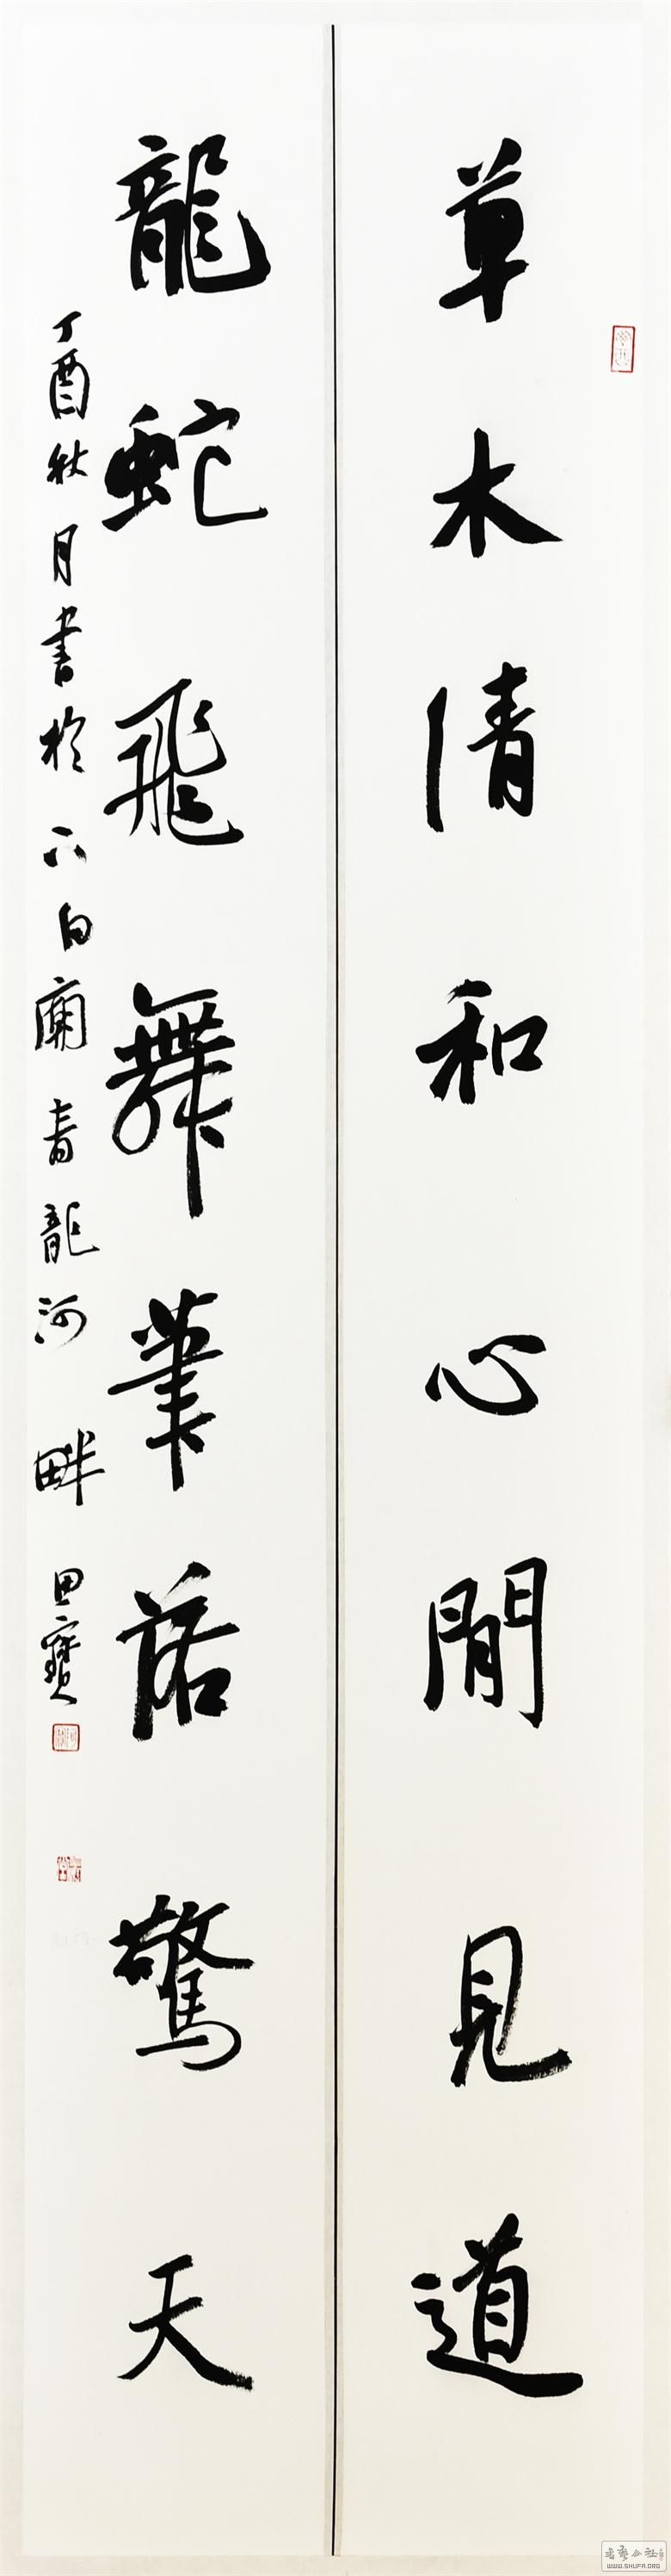 草木清和心閒見道
龍蛇飛舞筆落驚天
丁酉秋月書於六白廟青龍河畔田寶
書藝公社
WWW.SHUFA.ORG